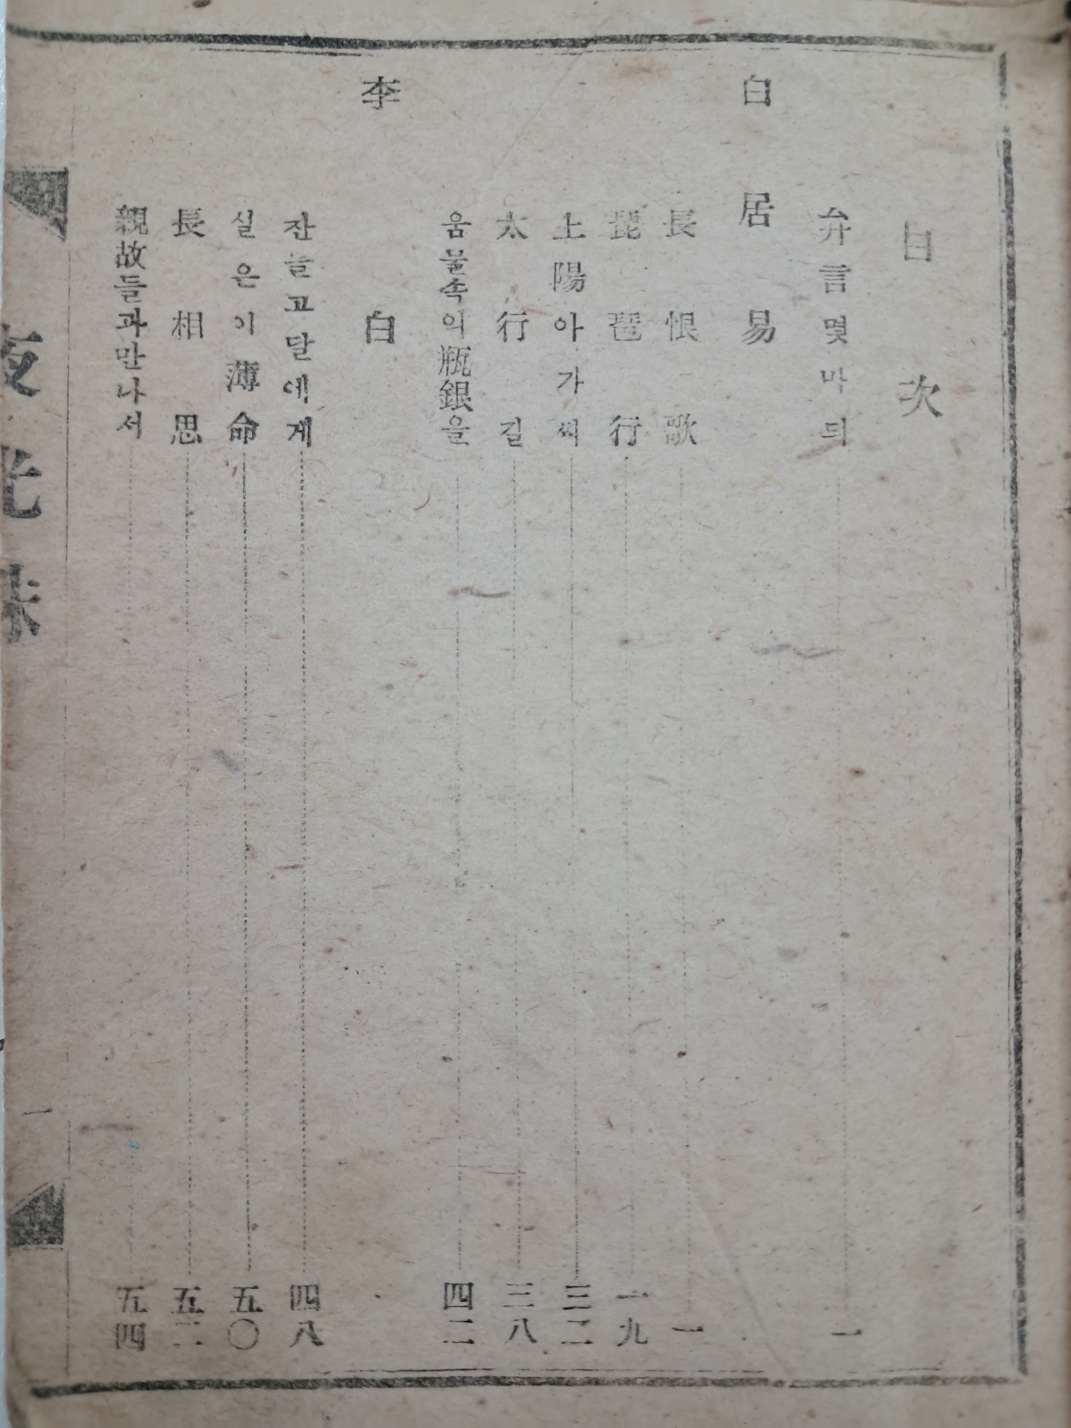 目次
弁言몇마듸 一
白居易
長恨歌 一
琵琶行 一九
上陽아가씨 三二
太行길 三八
움물속의甁銀을 四二
李白
잔들고달에게 四八
실은이薄命 五〇
長相思 五二
親故들과만나서 五四
夜光珠
一